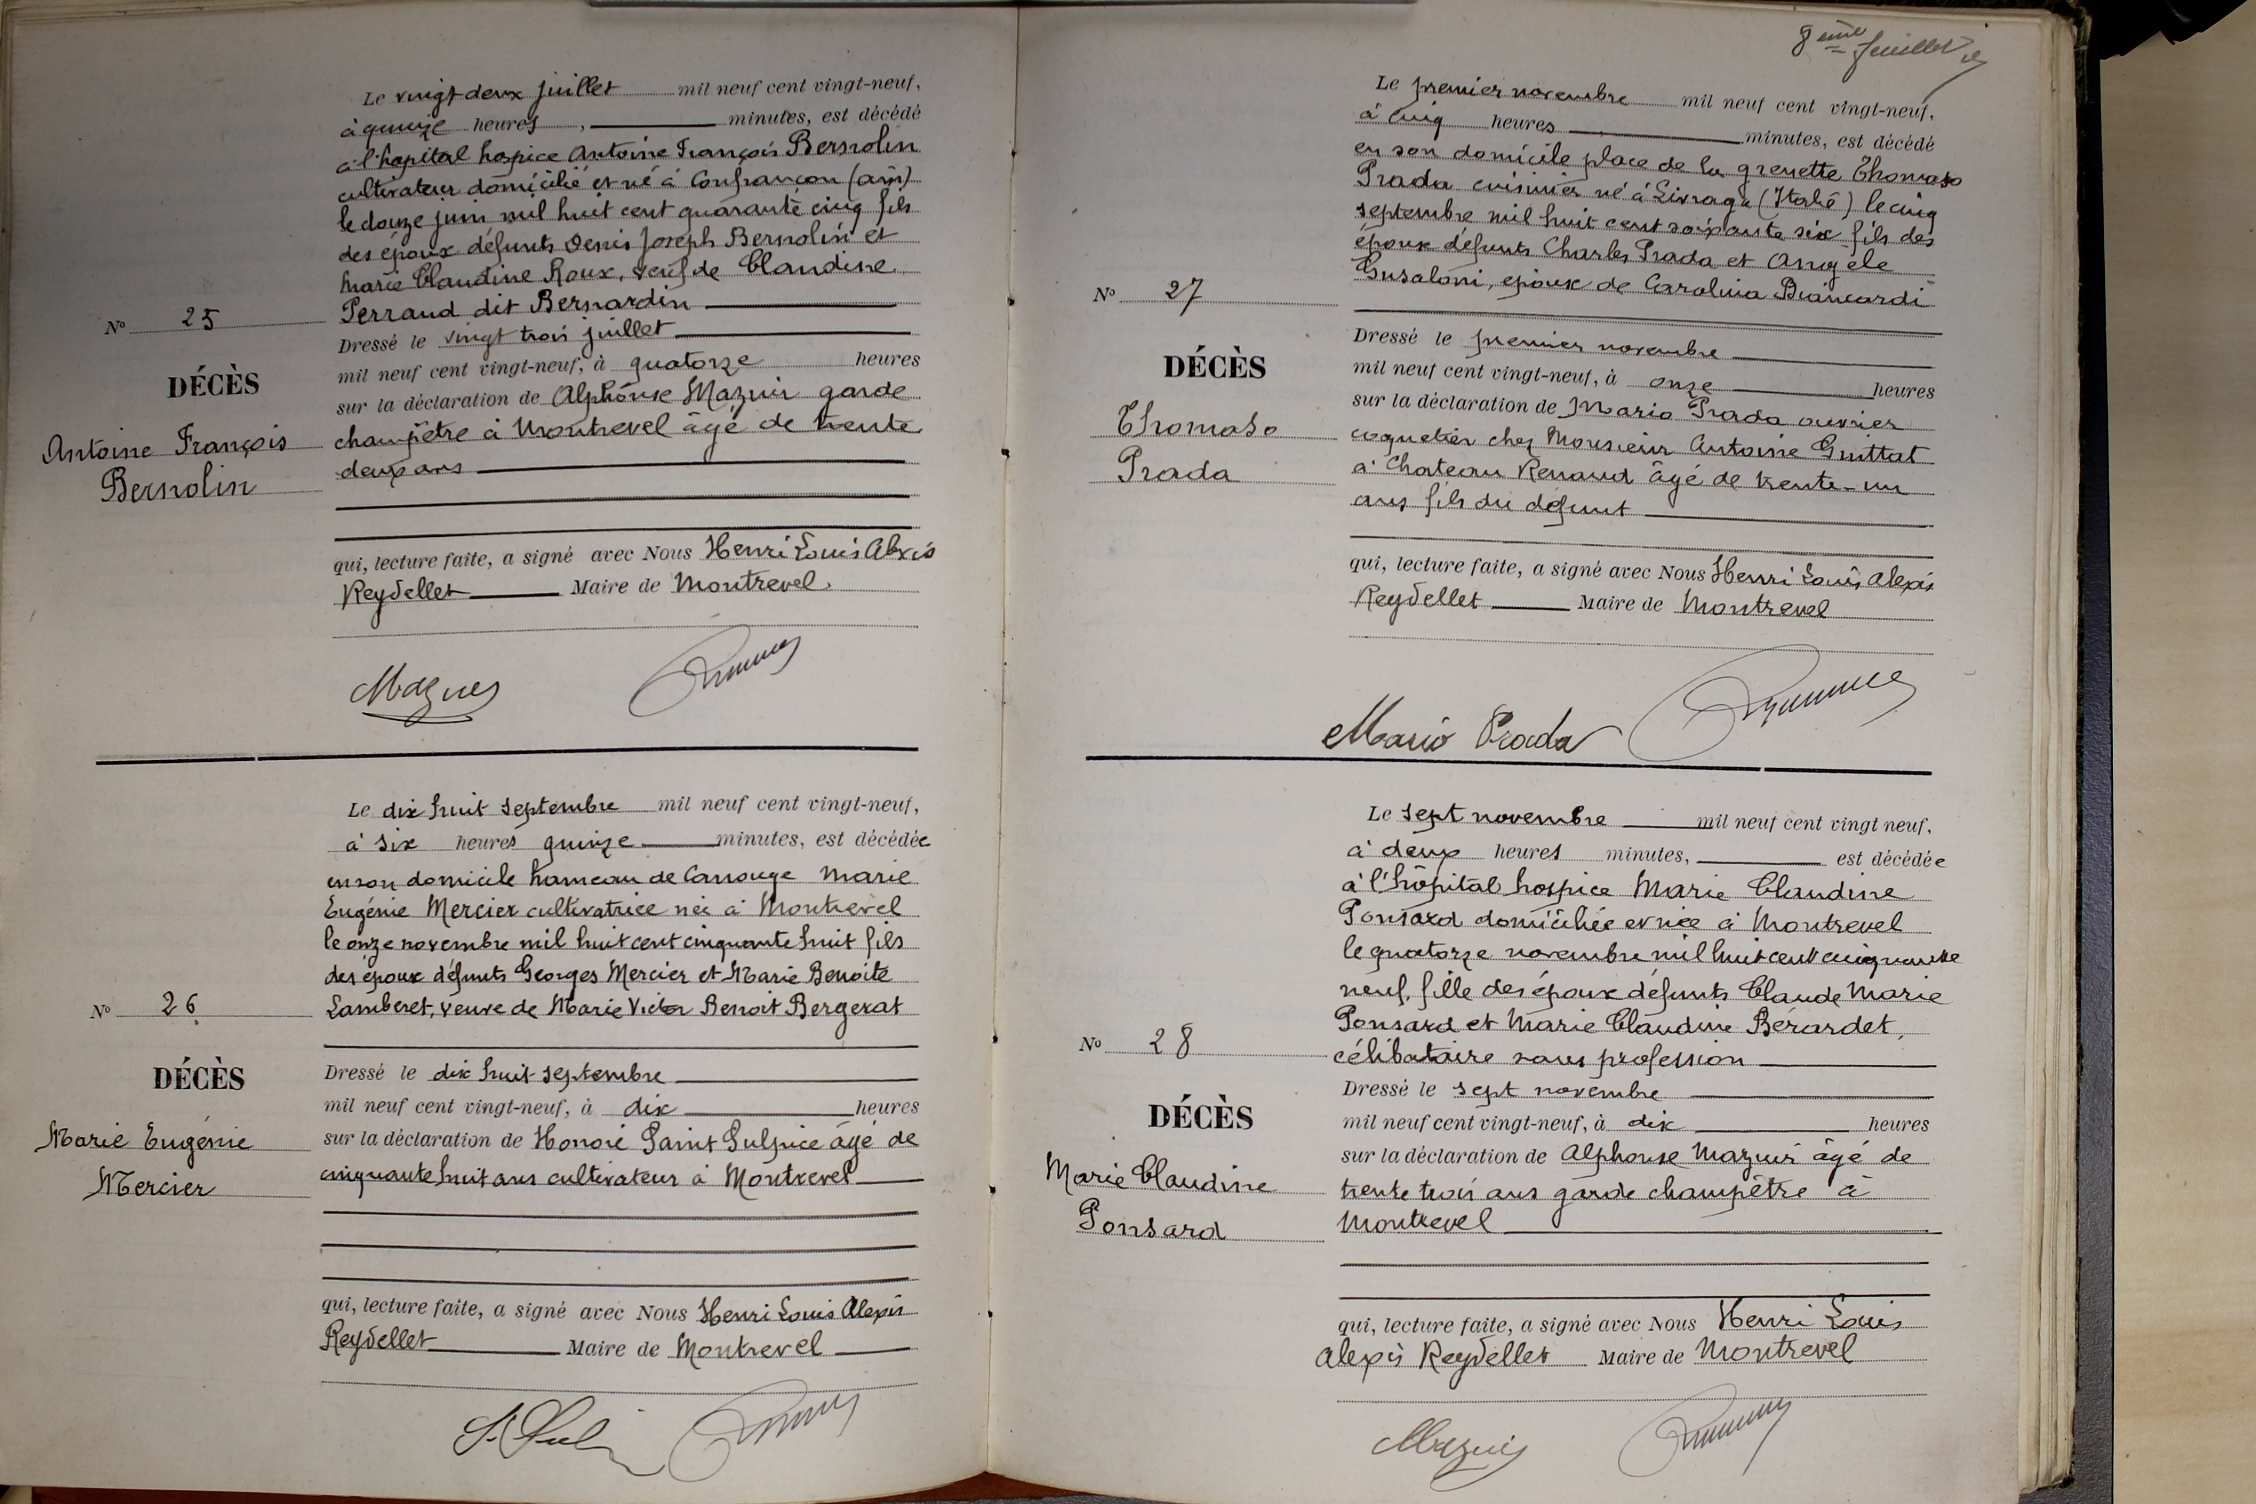 Le vingt deux juillet mil neuf cent vingt-neuf,
à quinze heures, minutes, est décédé
à l'hopital hospice Antoine François Bernolin
cultivateur domicilié et né à Confrançon (ain)
le douze juin mil huit cent quarante cinq fils
des époux défunts Denis Joseph Bernolin et
Marie Claudine Roux, veuf de Claudine
Perraud dit Bernardin
Nº 25
DÉCÈS
Antoine François
Bernolin
Dressé le vingt trois juillet
mil neuf cent vingt-neuf, à quatorze heures
sur la déclaration de Alphonse Mazuir garde
champêtre à Montrevel âgé de trente
deux ans
qui, lecture faite, a signé avec Nous Henri Louis Alexis
Reydellet Maire de Montrevel.
Mazuir
Le dix huit septembre mil neuf cent vingt-neuf,
à six heures quinze minutes, est décédée
en son domicile hameau de Carrouge Marie
Eugénie Mercier cultivatrice née à Montrevel
le onze novembre mil huit cent cinquante huit fils
des époux défunts Georges Mercier et Marie Benoite
Lamberet, veuve de Marie Victor Benoit Bergerat
Nº 26
DÉCÈS
Marie Eugénie
Mercier
Dressé le dix huit septembre
mil neuf cent vingt-neuf, à dix heures
sur la déclaration de Honoré Saint Sulpice âgé de
cinquante huit ans cultivateur à Montrevel
qui, lecture faite, a signé avec Nous Henri Louis Alexis
Reydellet Maire de Montrevel
8ème feuillet
Le premier novembre mil neuf cent vingt-neuf,
à cinq heures minutes, est décédé
en son domicile place de la grenette Thomaso
Prada cuisinier né à Livraga (Italie) le cinq
septembre mil huit cent soixante six fils des
époux défunts Charles Prada et Angèle
Gusaloni, époux de Carolina Biancardi
Nº 27
DÉCÈS
Thomaso
Prada
Dressé le premier novembre
mil neuf cent vingt-neuf, à onze heures
sur la déclaration de Mario Prada ouvrier
coquetier chez Monsieur Antoine Guittat
à Chateau Renaud âgé de trente-un
ans fils du défunt
qui, lecture faite, a signé avec Nous Henri Louis Alexis
Reydellet Maire de Montrevel
Mario Prada
Le sept novembre mil neuf cent vingt neuf,
à deux heures minutes, est décédée
à l'hôpital hospice Marie Claudine
Ponsard domiciliée et née à Montrevel
le quatorze novembre mil huit cent cinquante
neuf, fille des époux défunts Claude Marie
Ponsard et Marie Claudine Bérardet,
célibataire sans profession
Nº 28
DÉCÈS
Marie Claudine
Ponsard
Dressé le sept novembre
mil neuf cent vingt-neuf, à dix heures
sur la déclaration de Alphonse Mazuir âgé de
trente trois ans garde champêtre à
Montrevel
qui, lecture faite, a signé avec Nous Henri Louis
Alexis Reydellet Maire de Montrevel
Mazuir